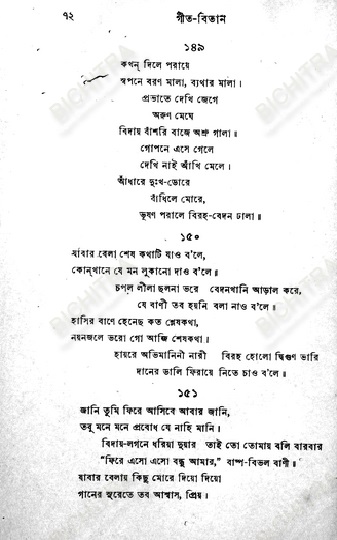 ৭২ গীত-বিতান
১৪৯
কখন্ দিলে পরায়ে
স্বপনে বরণ মালা, ব্যথার মালা।
প্রভাতে দেখি জেগে
অরুণ মেঘে
বিদায় বাঁশরি বাজে অশ্রু গালা॥
গোপনে এসে গেলে
দেখি নাই আঁখি মেলে।
আঁধারে দুঃখ-ডোরে
বাঁধিলে মোরে,
ভূষণ পরালে বিরহ-বেদন ঢালা॥
১৫০
যাবার বেলা শেষ কথাটি যাও ব'লে,
কোন্‌খানে যে মন লুকানো দাও ব'লে॥
চপল লীলা ছলনা ভরে বেদনখানি আড়াল করে,
যে বাণী তব হয়নি বলা নাও ব'লে॥
হাসির বাণে হেনেছ কত শ্লেষকথা,
নয়নজলে ভরো গো আজি শেষকথা।
হায়রে অভিমানিনী নারী বিরহ হোলো দ্বিগুণ ভারি
দানের ডালি ফিরায়ে নিতে চাও ব'লে॥
১৫১
জানি তুমি ফিরে আসিবে আবার জানি,
তবু মনে মনে প্রবোধ যে নাহি মানি।
বিদায়-লগনে ধরিয়া দুয়ার তাই তো তোমায় বলি বারবার
"ফিরে এসো এসো বন্ধু আমার," বাষ্প-বিভল বাণী॥
যাবার বেলায় কিছু মোরে দিয়ো দিয়ো
গানের সুরেতে তব আশ্বাস, প্রিয়।
BICHITRA